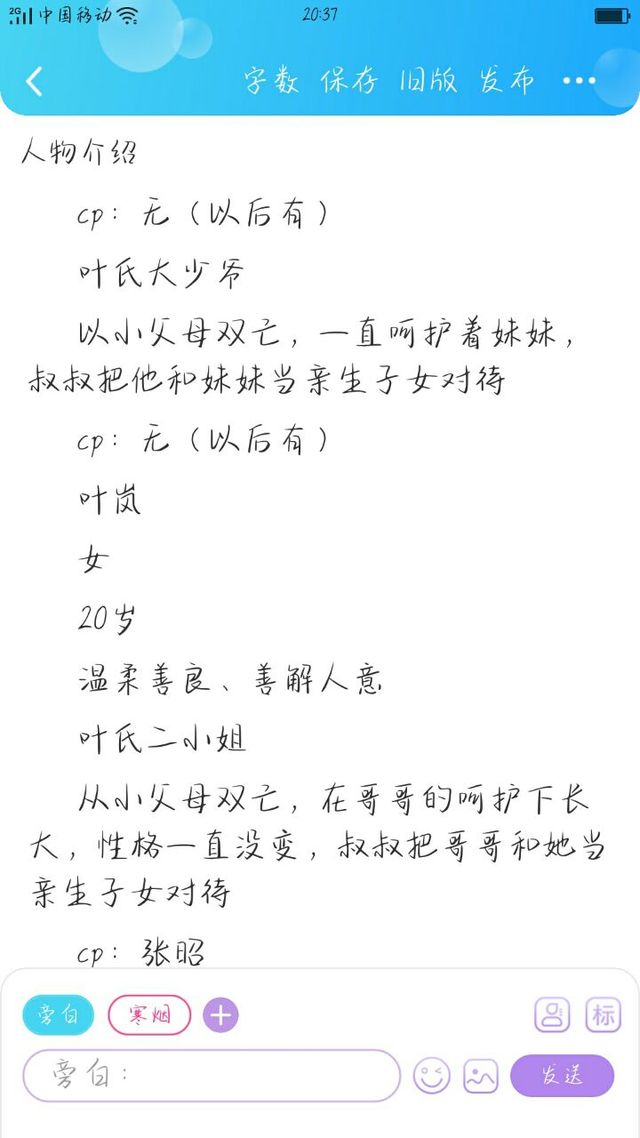 2G 中国移动 20:37
字数 保存 旧版 发布
人物介绍
cp：无（以后有）
叶氏大少爷
以小父母双亡，一直呵护着妹妹，
叔叔把他和妹妹当亲生子女对待
cp：无（以后有）
叶岚
女
20岁
温柔善良、善解人意
叶氏二小姐
从小父母双亡，在哥哥的呵护下长
大，性格一直没变，叔叔把哥哥和她当
亲生子女对待
cp：张昭
旁白 寒烟 标
旁白： 发送